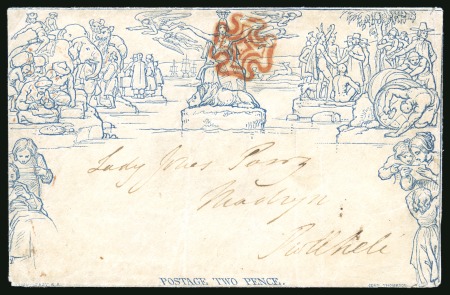 Lady Jones Parry
Madryn
Pwllheli
POSTAGE TWO PENCE.